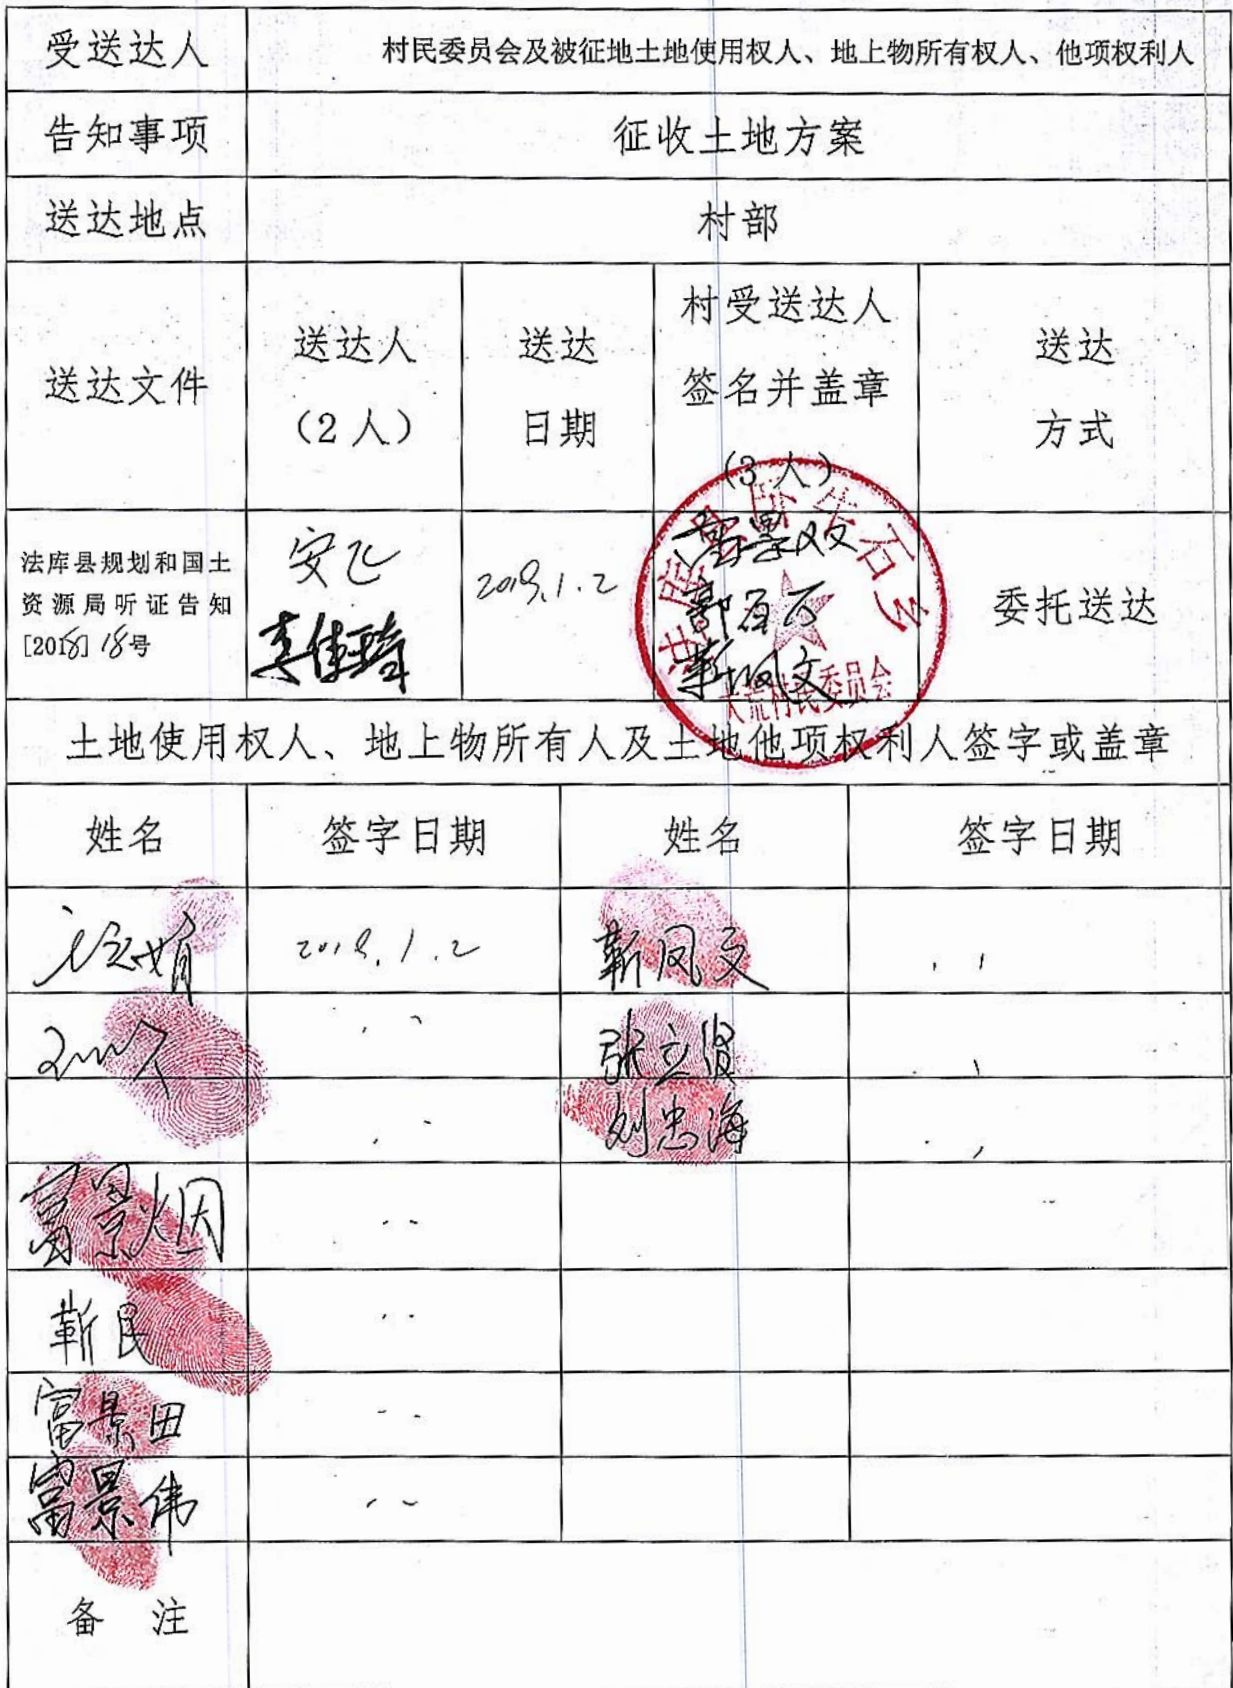 受送达人
村民委员会及被征地土地使用权人、地上物所有权人、他项权利人
告知事项
征收土地方案
送达地点
村部
送达文件
送达人
（2人）
送达
日期
村受送达人
签名并盖章
（3人）
送达
方式
法库县规划和国土
资源局听证告知
[2018] 18号
安飞
2018.1.2
靳凤文
委托送达
大荒村民委员会
土地使用权人、地上物所有人及土地他项权利人签字或盖章
姓名
签字日期
姓名
签字日期
2018.1.2
靳凤文
张立俊
刘忠海
富景烟
靳民
富景田
富景伟
备 注